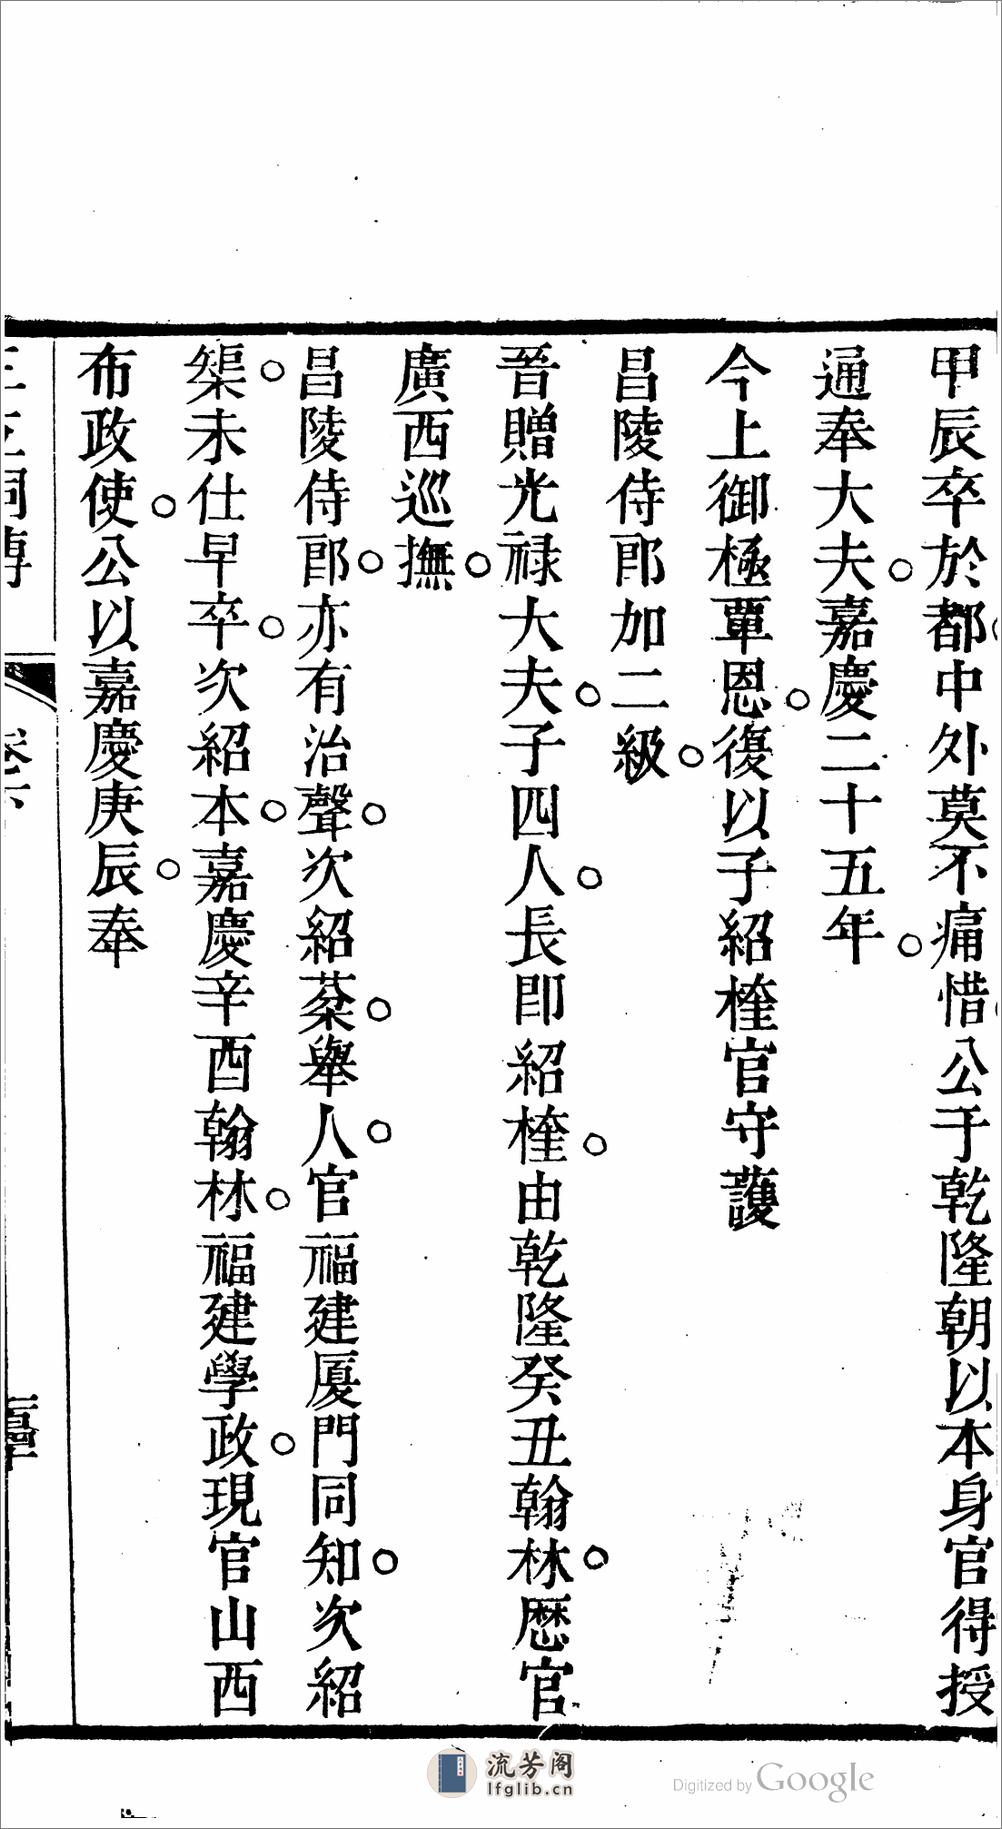 甲辰卒於都中外莫不痛惜公于乾隆朝以本身官得授
通奉大夫嘉慶二十五年
今上御極覃恩復以子紹樘官守護
昌陵侍郎加二級
晉贈光禄大夫子四人長即紹樘由乾隆癸丑翰林歷官
廣西巡撫
昌陵侍郎亦有治聲次紹棻舉人官福建厦門同知次紹
榘未仕早卒次紹本嘉慶辛酉翰林福建學政現官山西
布政使公以嘉慶庚辰奉
流芳阁
lfglib.cn
Digitized by Google